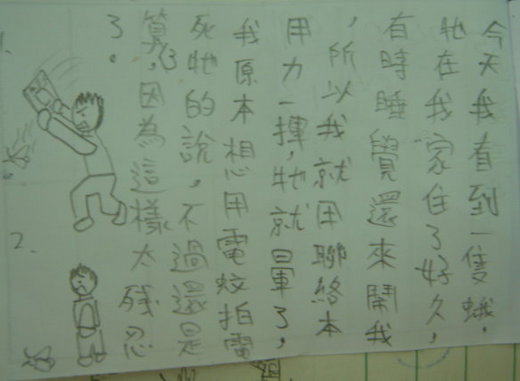 今天我看到一隻蛾，
牠在我家住了好久，
有時睡覺還來鬧我
，所以我就用聯絡本
用力一揮，牠就暈了，
我原本想用電蚊拍電
死牠的說，不過還是
算了，因為這樣太殘忍
了。
1.
2.